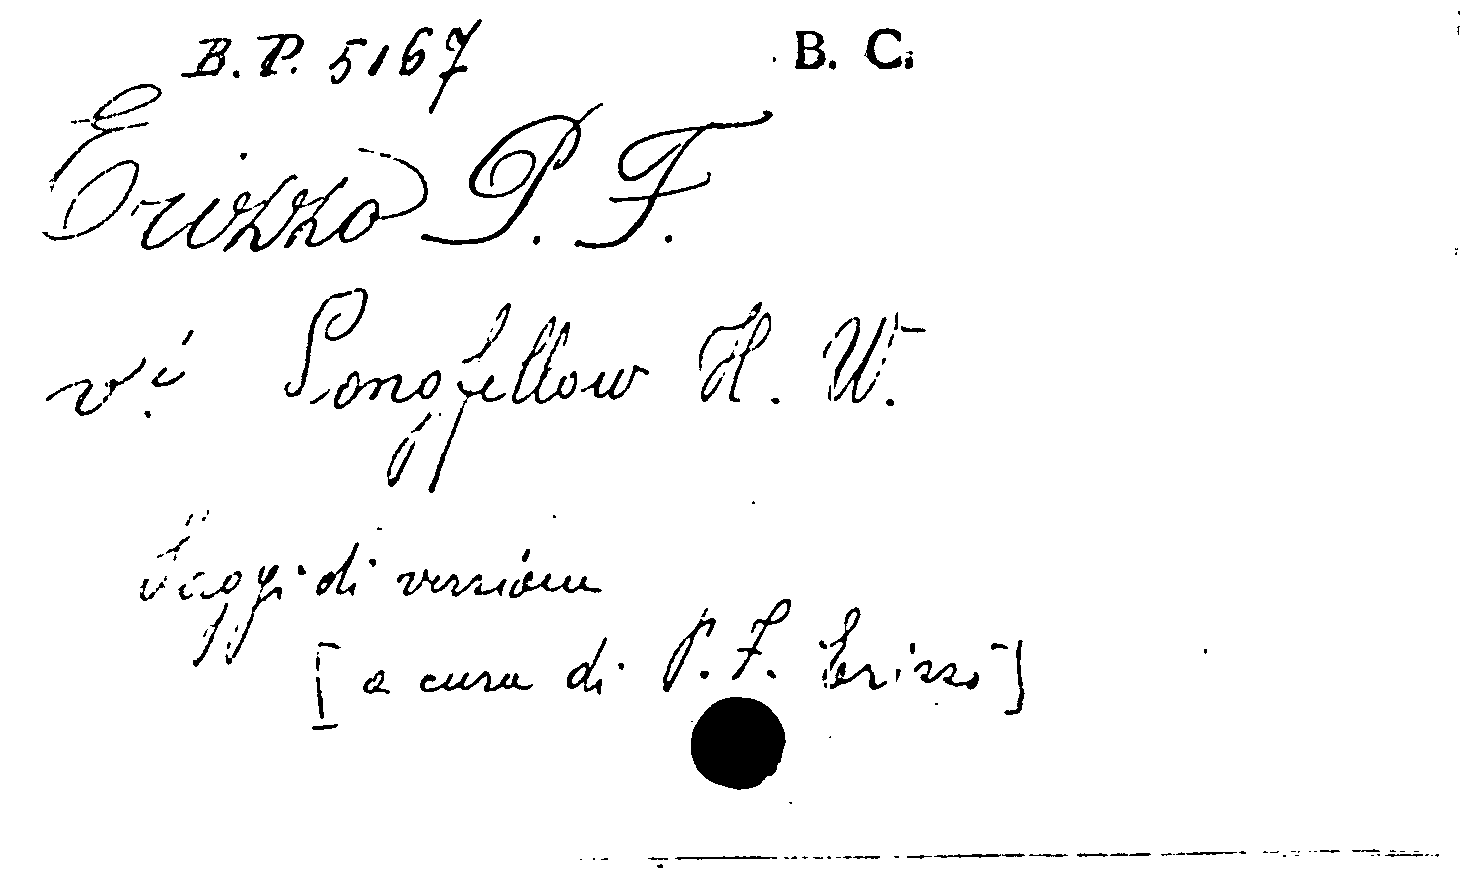 B. P. 5167 B. C.
Erizzo P. F.
vi Longfellow H. W.
Saggi di versione
[a cura di P. F. Erizzo]